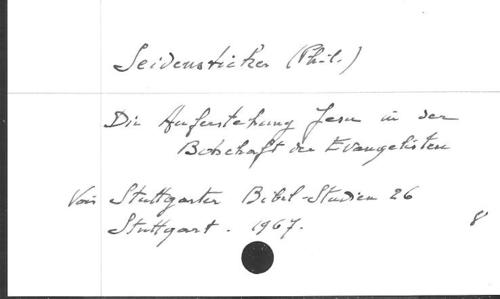 Seidensticker (Phil.)
Die Auferstehung Jesu in der
Botschaft der Evangelisten
Voir Stuttgarter Bibel-Studien 26
Stuttgart. 1967. 8°